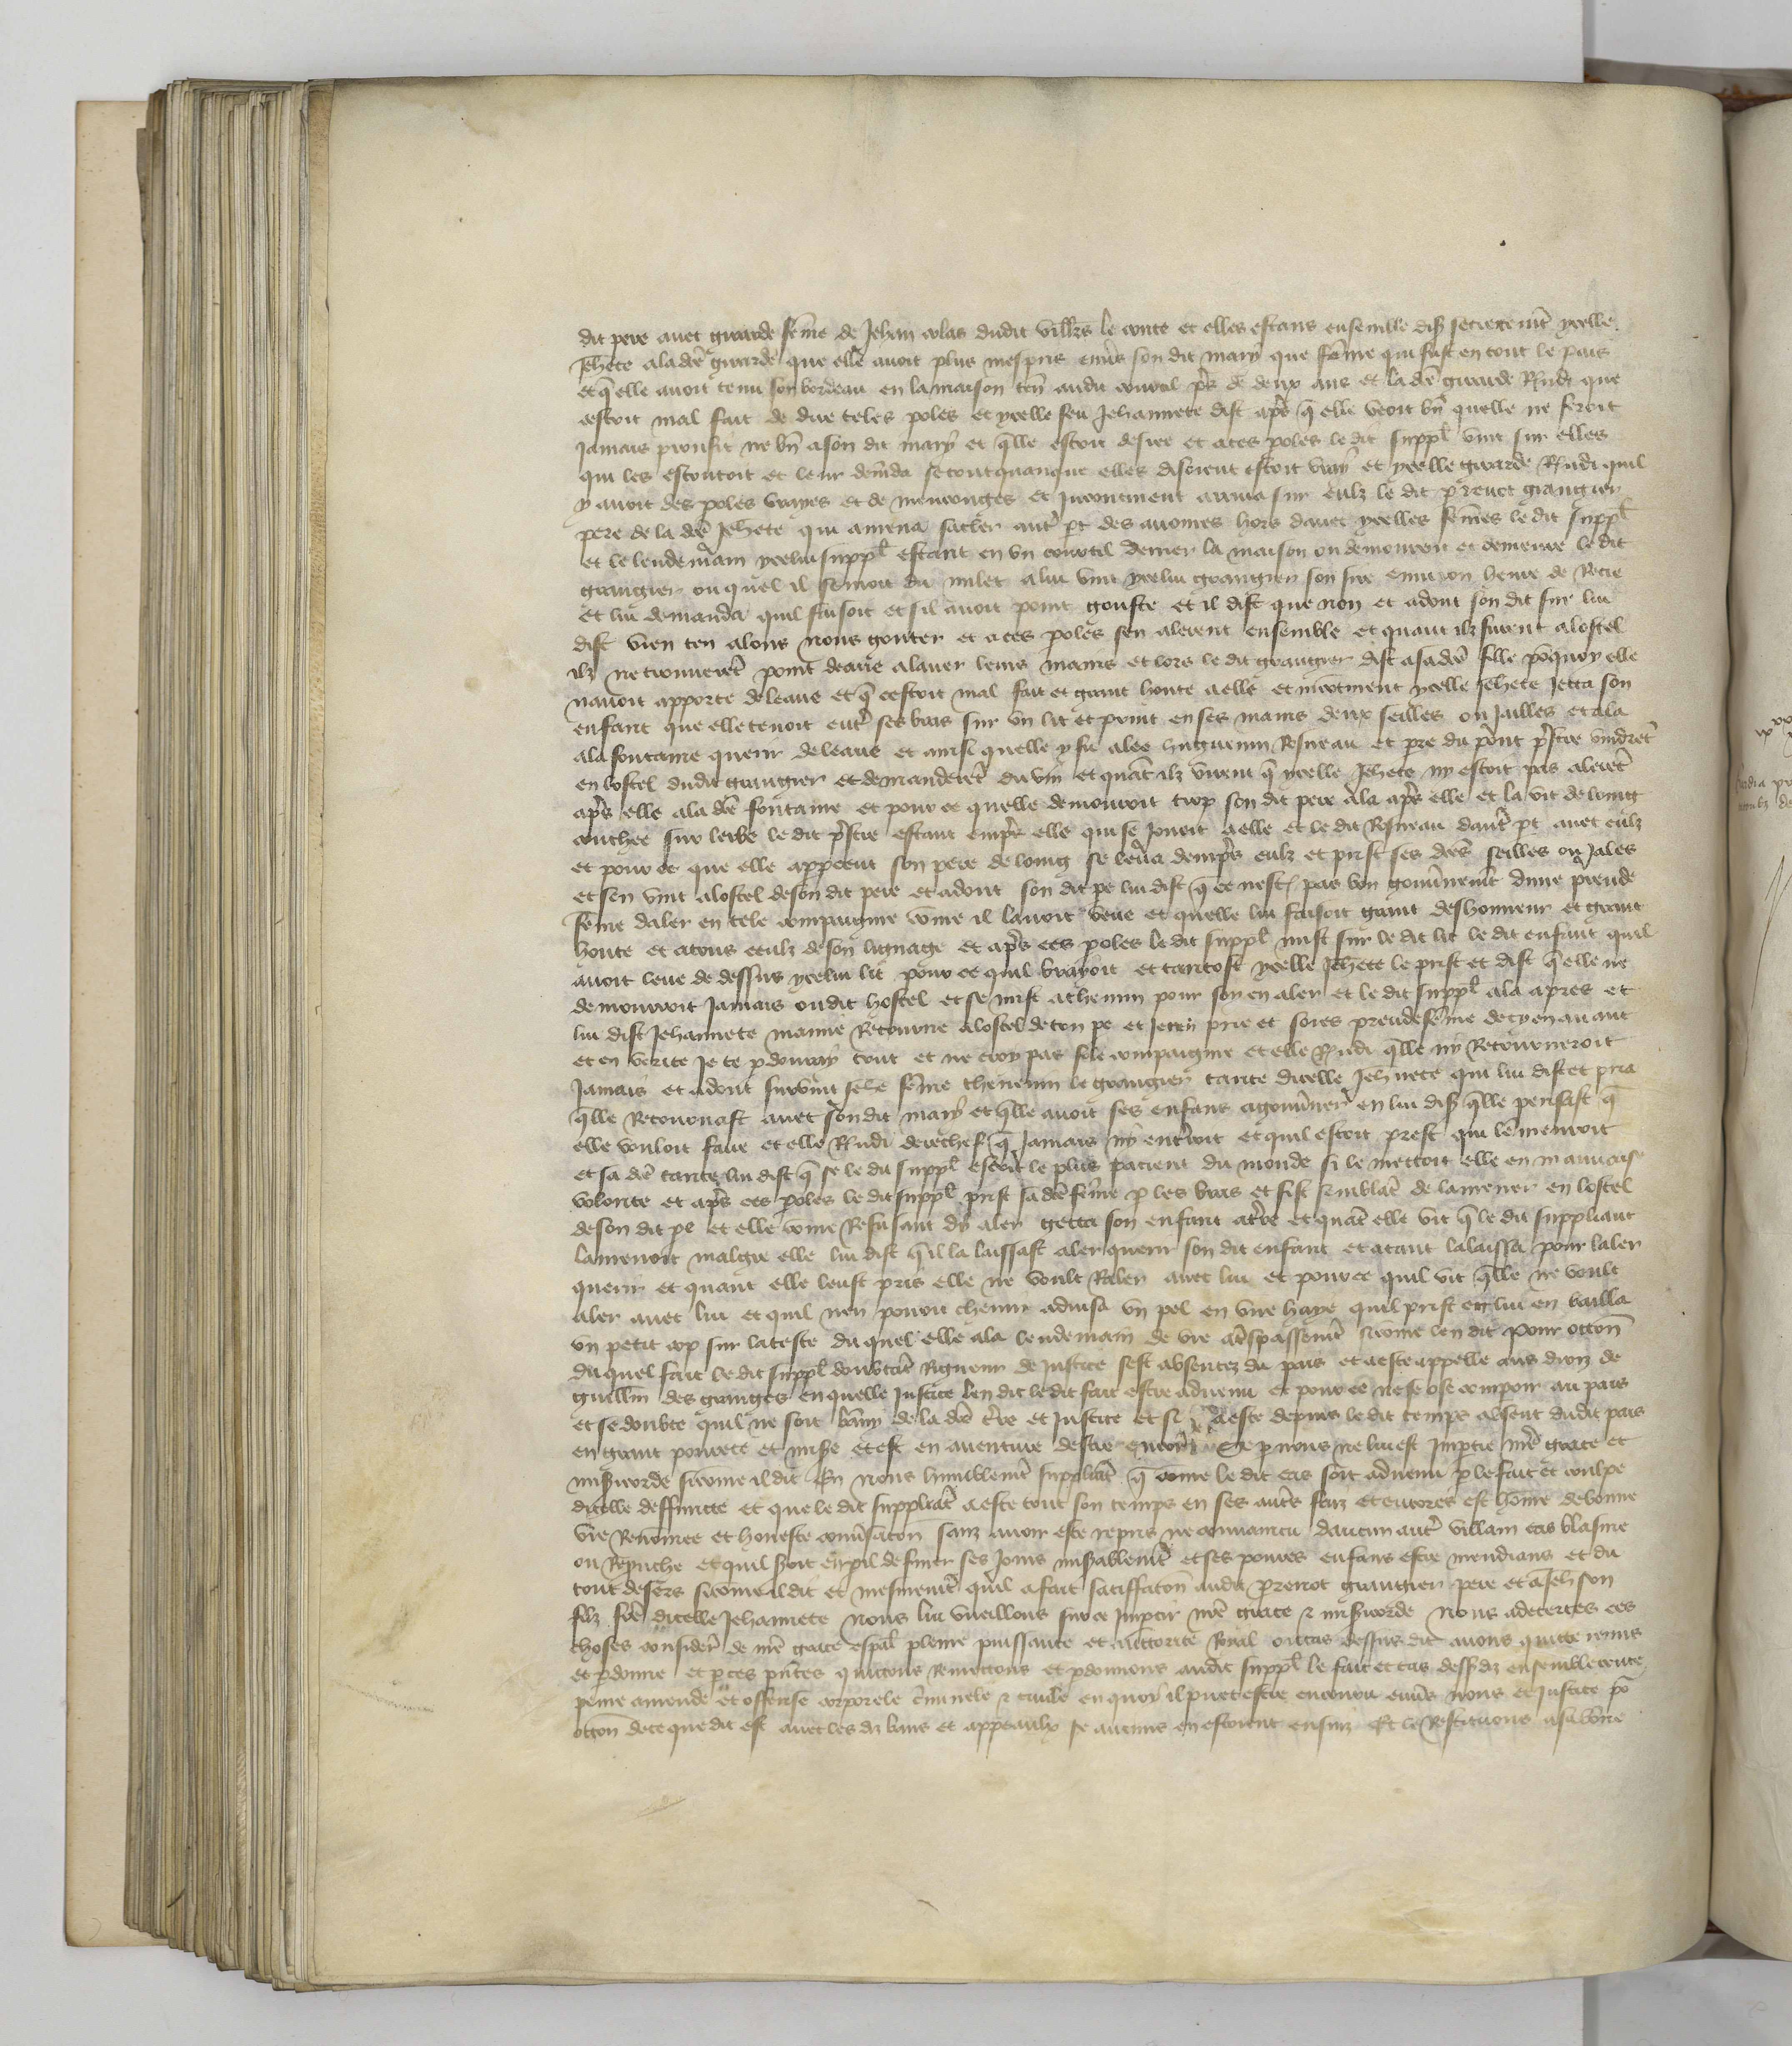 dit pere avec girarde fēme de Jehan colas dudit villrs le conte et elles estans ensemble disz secretemēt ycelle
Jehēte ala dcē girarde que elle avoit plus mespris envs son dit mary que fēme qui fust en tout le pais
et q̄ elle avoit tenu son bordeau en la maison ten audit courtil pres de deux ans et la dcē girarde Rndi que
cestoit mal fait de dire teles poles et ycelle feu Jehannete dist aps q̄ elle veoit bn quelle ne feroit
Jamais proufit ne bn a son dit mary et qlle estoit desiree et a ces poles le dit suppl vint sur elles
qui les escoutoit et leur demda se tout quanque elles disoient estoit vray et ycelle girarde Rndi quil
y avoit des poles vrayes et de menconges et Incontinent arriva sur eulz le dit prevot grangier
pere de la dcē Jehēte qui amena sacler autr pt des avoines hors davec ycelles fēmes le dit suppl
et le lendemain ycelui suppl estant en un courtil derrier la maison ou demouroit et demeure le dit
grangier ou quel il semoit du milet a lui vint ycelui grangier son sire environ heure de Tercie
et lui demanda quil faisoit et sil avoit point gouste et il dist que non et adont son dit sire lui
dist vien ten alons nous gouter et a ces poles sen alerent ensemble et quant ilz furent alostel
ilz ne trouverēt point deaue a laver leurs mains et lors le dit grangier dist a sa dcē fille pourquoy elle
navoit apporte de leaue et q̄ cestoit mal fait et grant honte a elle et incōtinent ycelle Jehēte Jetta son
enfant que elle tenoit entr ses bras sur un lit et print en ses mains deux seilles ou Jailles et ala
ala fontaine querir de leaue et ainsi quelle y fu alee huguenin Resneau et pre du pont prstre vindrēt
en lostel dudit grangier et demanderēt du vin et quāt ilz virent q̄ ycelle Jehēte ny estoit pas alerēt
aps elle ala dcē fontaine et pour ce quelle demouroit trop son dit pere ala aps elle et la vit de loing
couchee sur lerbe le dit prstre estant empres elle qui se Jouoit a elle et le dit Resneau dautr pt avec eulz
et pour ce que elle appercut son pere de loing se leva dempres eulz et prist ses dcēs seilles ou Jales
et sen vint alostel de son dit pere et adont son dit pe lui dist q̄ ce nest pas bon gouvnemēt dune preude
fēme daler en tele compaignie cōme il lavoit veue et quelle lui faisoit grant deshonneur et grant
honte et a tous ceulz de son lignage et aps ces poles le dit suppl mist sur le dit lit le dit enfant quil
avoit leve de dessus ycelui lit pour ce quil brayoit et tantost ycelle Jehēte le prist et dist q̄ elle ne
demourroit Jamais oudit hostel et se mist a chemin pour son en aler et le dit suppl ala apres et
lui dist Jehannete mamie Retourne alostel de ton pe et Je ten prie et soies preudefēme decy en avant
et en verite Je te pdonray tout et ne croy pas fole compaignie et elle Rndi qlle ny Retourneroit
Jamais et adont survint Jehē fēme thevenin le grangier tante dicelle Jehnete qui lui dist et pria
qlle Retournast avec son dit mary et qlle avoit ses enfans agouvner en lui disz qlle pensast q̄
elle vouloit faire et elle Rndi derechef q̄ Jamais ny entrroit et quil estoit prest qui lemenroit
et sa dcē tante lui dist q̄ se le dit suppl estoit le plus pacient du monde si le mettoit elle en mauvaise
volonte et aps ces poles le dit suppl prist sa dcē fēme p les bras et fist semblāt de lamener en lostel
de son dit pe et elle cōme Refusant dy aler getta son enfant a tre et quāt elle vit q̄ le dit suppliant
lamenoit malgre elle lui dist q̄ il la laissast aler querir son dit enfant et atant la laissa pour laler
querir et quant elle leust pris elle ne voult Raler avec lui et pour ce quil vit qlle ne voult
aler avec lui et quil nen pouoit chevir advisa un pel en une haye quil prist et lui en bailla
un petit cop sur la teste du quel elle ala lendemain de vie a trespassemēt sicōme len dit Pour occon
du quel fait le dit suppl doubtāt Rigueur de justice sest absentez du pais et a este appelle aus droiz de
guillm des granges en quelle Justice len dit le dit fait estre advenu et pour ce ne se ose comparoir au pais
et se doubte quil ne soit bāny de la dcē tre et Justice et si a este depuis le dit temps absent dudit pais
en grant povrete et misere et est en aventure destre Se p nous ne lui est Imptie nrē grace et
misericorde sicōme il dit En nous humblemēt suppliāt q̄ cōme le dit cas soit advenu p le fait et coulpe
dicelle deffuncte et que le dit suppliāt a este tout son temps en ses autrs faiz et encores est hōme de bonne
vie Renōmee et honeste conversacon sanz avoir este repris ne convaincu daucun autr villain cas blasme
ou Repruche et quil soit en pil de finer ses Jours miserablemēt et ses povres enfans estre mendians et du
tout desers sicōme il dit et mesmemēt quil a fait satiffacon audit prevot grangier pere et a Jeh son
filz frere dicelle Jehannete Nous lui vueillons sur ce Imptir nrē grace et misericorde Nous adecertes ces
choses considers de nrē grace espal pleine puissance et auctorite Royal ou cas dessus dit avons quicte remis
et pdonne et p ces pntes quictons Remettons et pdonnons audit suppl le fait et cas dessusdz ensemble toute
peine amende et offense corporele criminele et civile en quoy il puet estre encouru envs nous et Justice po
occon de ce que dit est avec les diz bans et appeaulx se aucuns en estoient ensuiz Et le Restituons a sa bōne